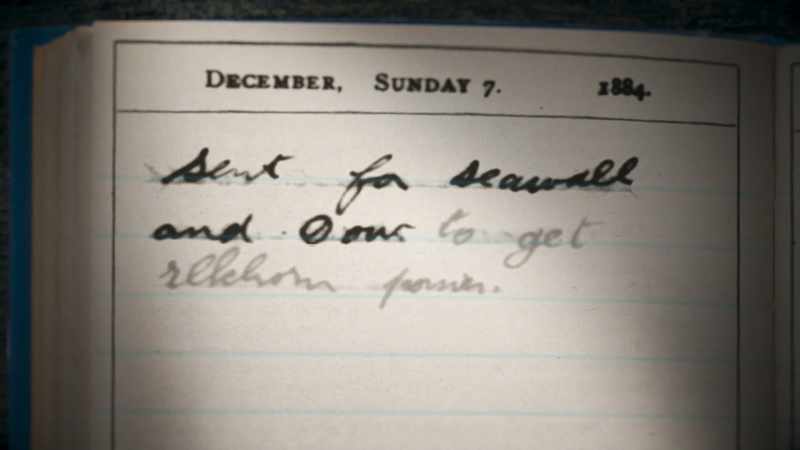 DECEMBER, SUNDAY 7. 1884.
sent for seawall
and to get
elkhorn